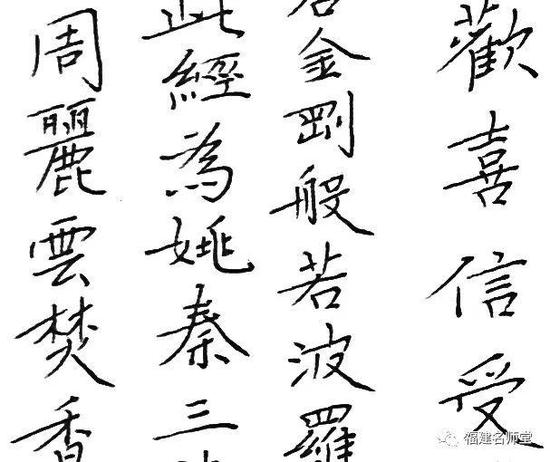 歡喜信受
金剛般若波羅
此經為姚秦三
周麗雲焚香
福建名师堂